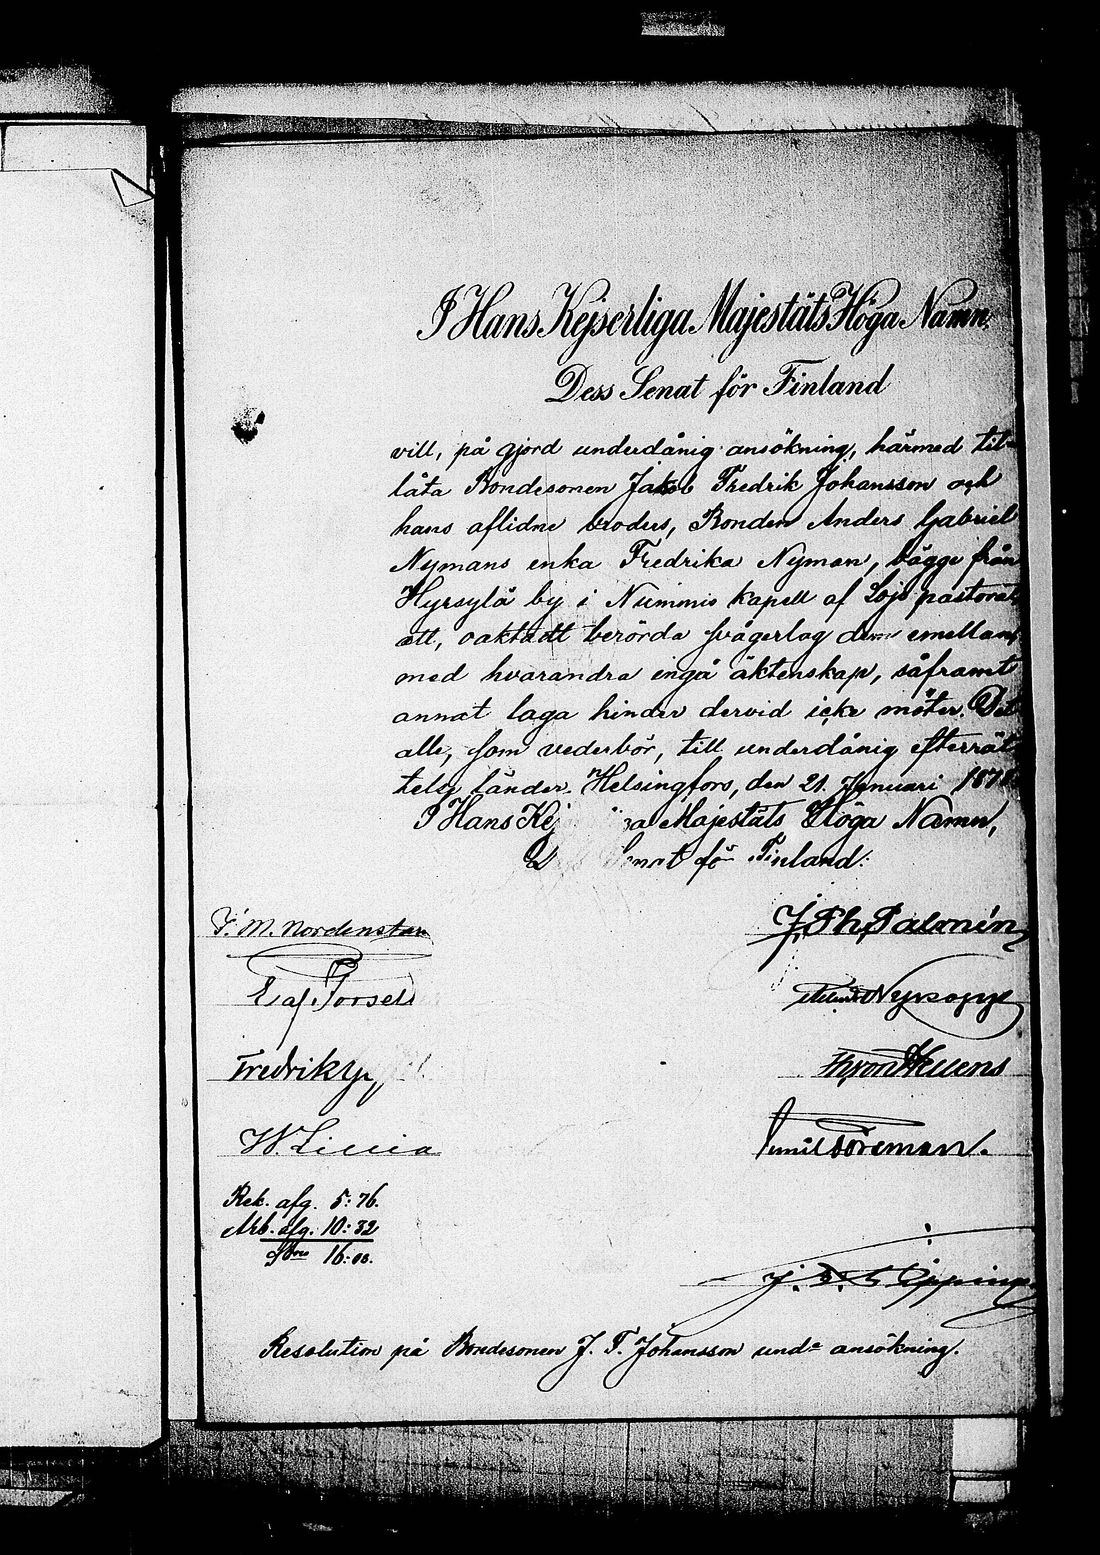 I Hans Kejserliga Majestäts Höga Namn,
Dess Senat för Finland
vill, på gjord underdånig ansökning, härmed til-
låta Bondesonen Jakob Fredrik Johansson och
hans aflidne broders, Bonden Anders Gabriel
Nymans enka Fredrika Nyman, bägge från
Hyrsylä by i Nummis kapell af Lojo pastorat,
att, oaktadt berörda svågerlag dem emellan,
med hvarandra ingå äktenskap, såframt
annat laga hinder dervid icke möter. Det
alle, som vederbör, till underdånig efterrät-
telse länder. Helsingfors, den 21 Januari
I Hans Kejserliga Majestäts Höga Namn,
Dess Senat för Finland:
J. M. Nordenstam J. Ph. Palmén
E af Forsell Nykopp
Fredrik von Hellens
W. Emil Föreman.
Rek. afg. 5:76.
Arb. afg. 10:32
S:ma 16:08.
Resolution på Bondesonen J. F. Johansson und:e ansökning.